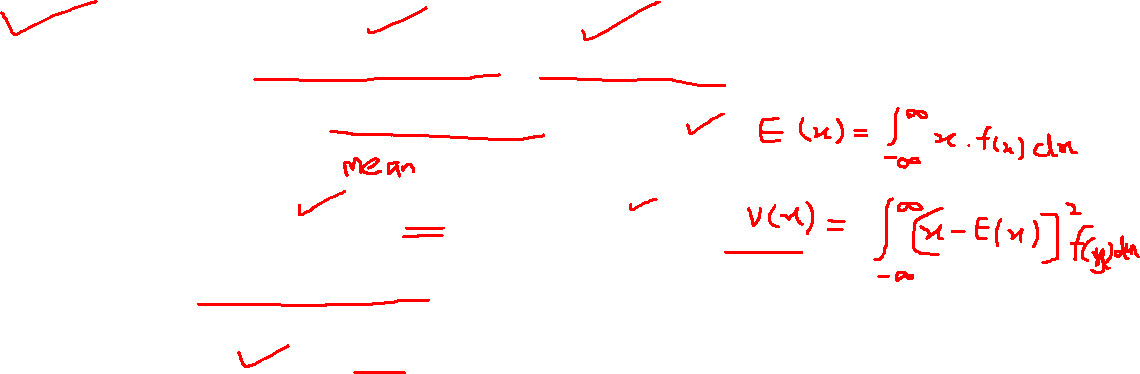 E(x) = ∫_{-∞}^{∞} x . f(x) dx
mean
V(x) = ∫_{-∞}^{∞} [x - E(x)]² f(x) dx